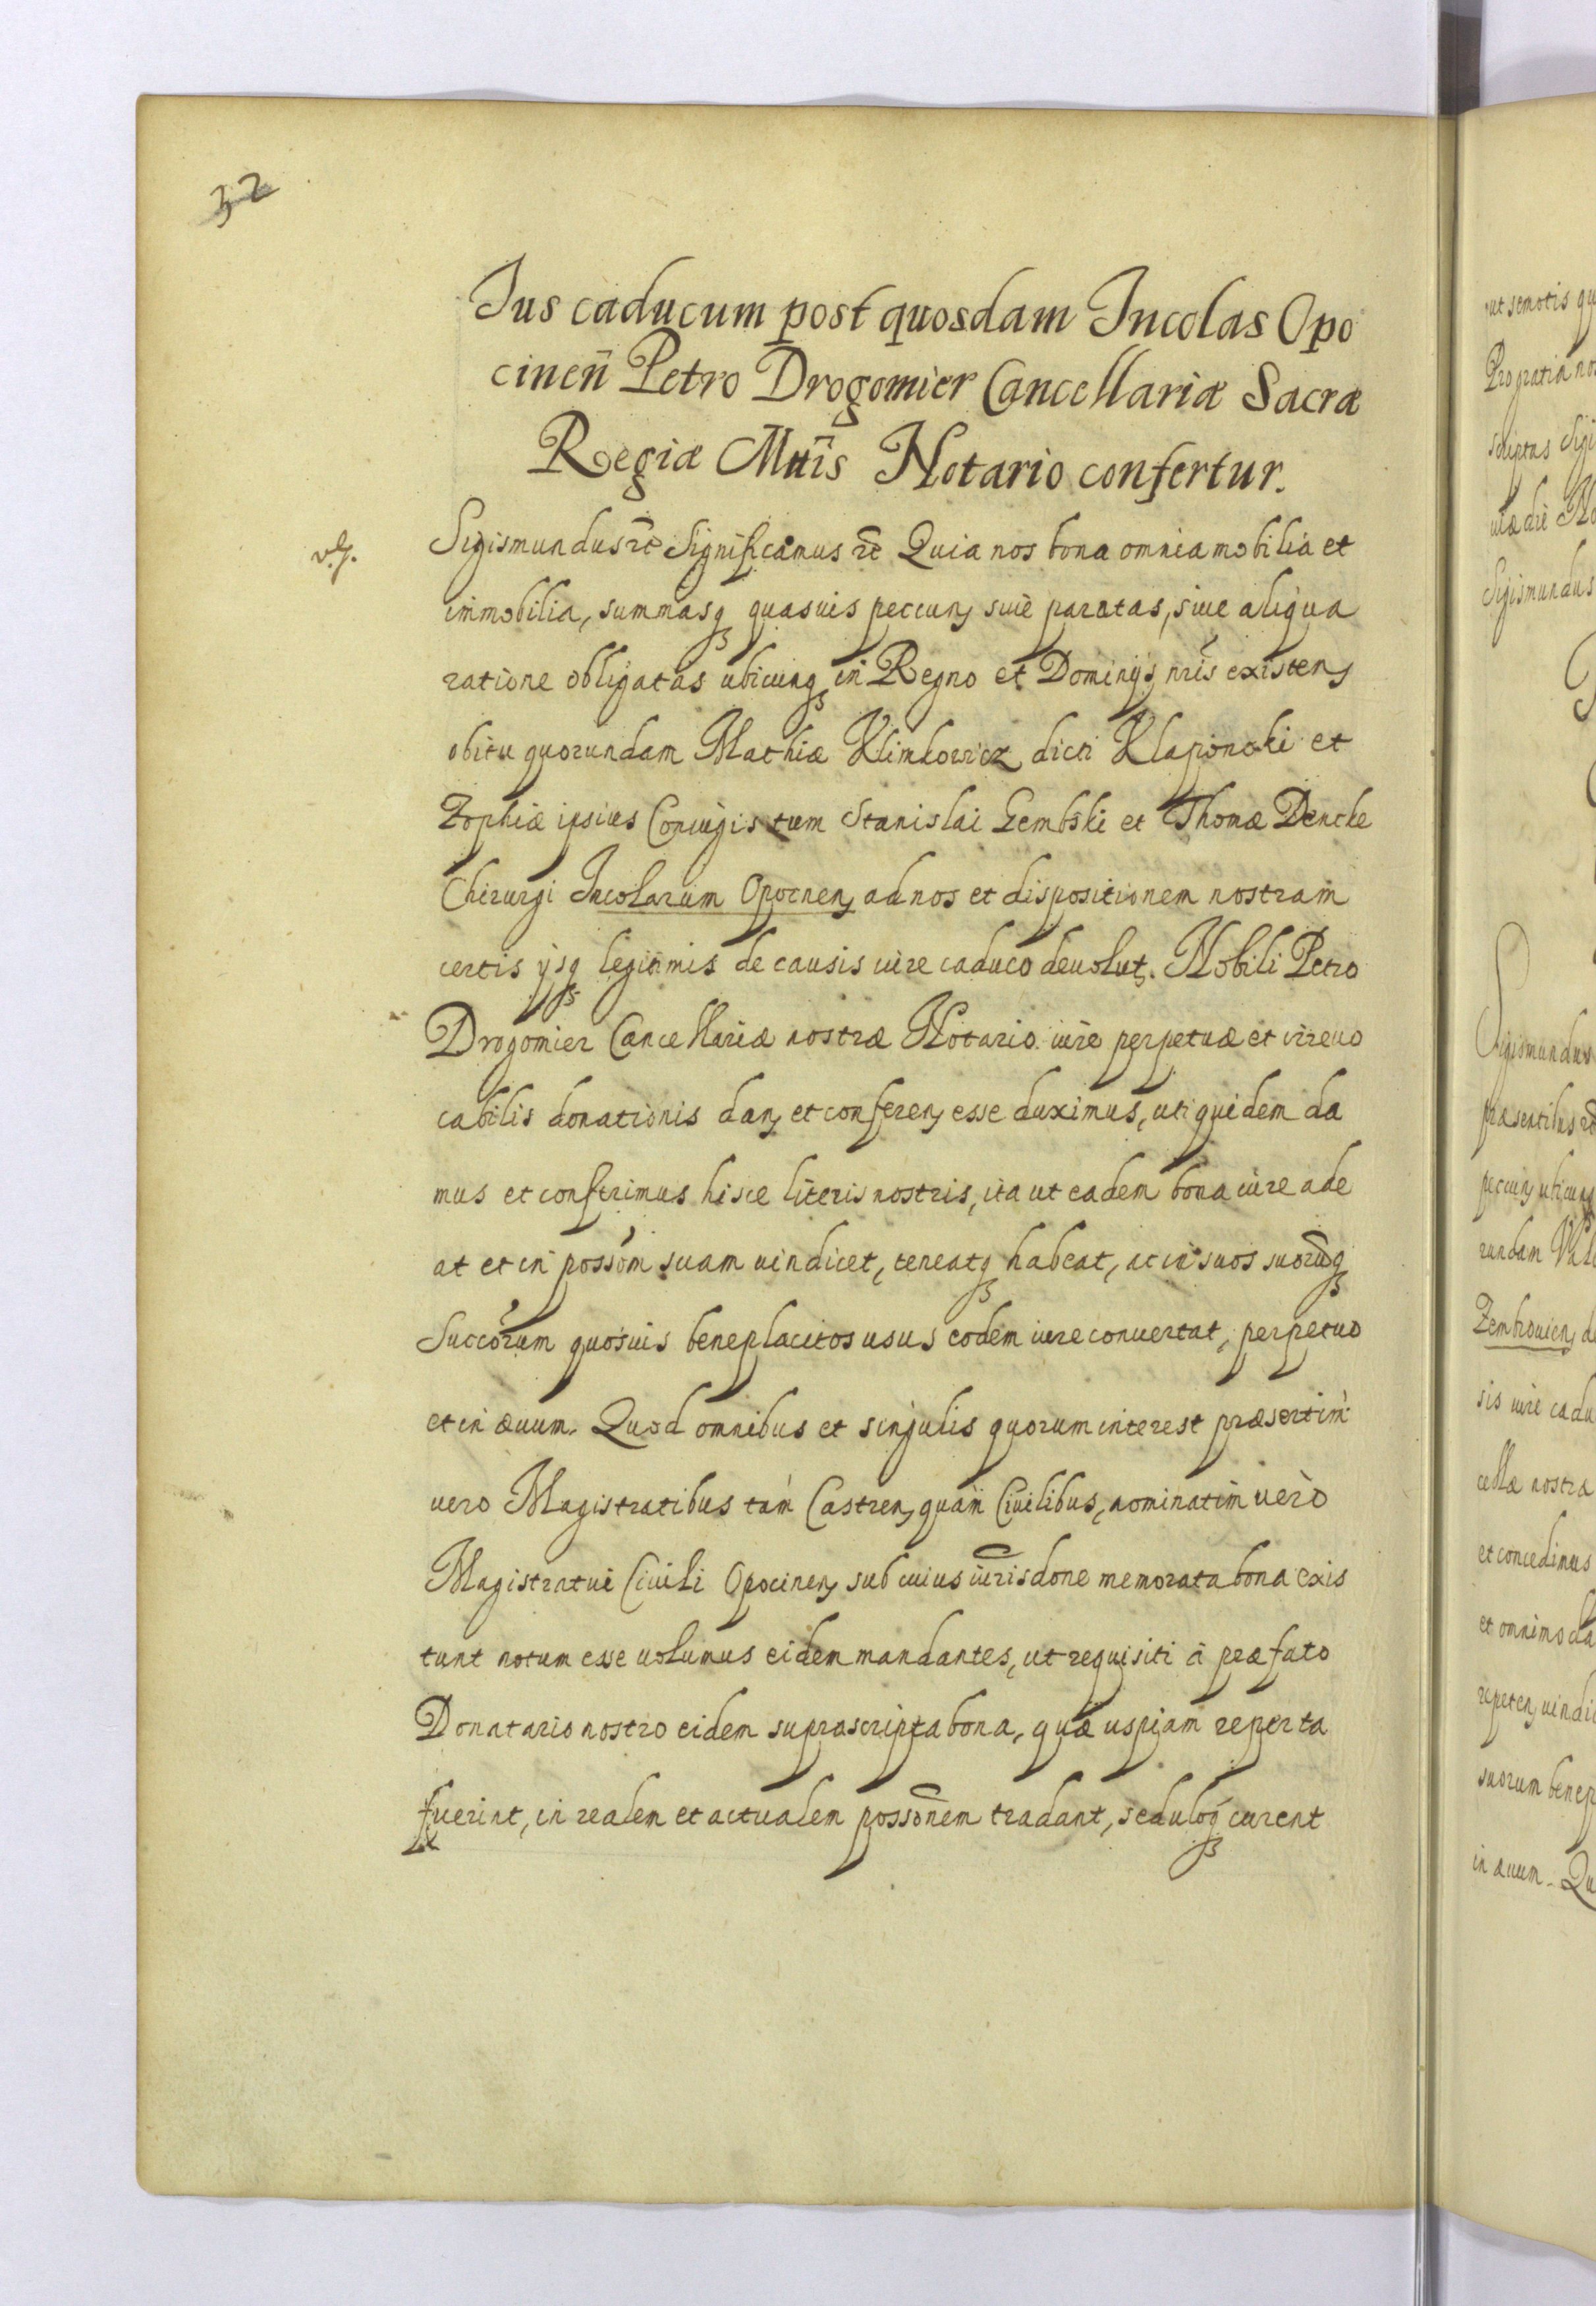 32
Ius caducum post quosdam Incolas Opo
cinen̄ Petro Drogomier Cancellariæ Sacræ
Regiæ Mttīs Notario confertur.
Sigismundus etc Significamus etc Quia nos bona omnia mobilia et
immobilia, summasq₃ quasuis peccun, siue paratas, siue aliqua
ratione obligatas ubicunq₃ in Regno et Dominijs nr̄is existen,
obitu quorundam Mathiæ Klimkowicz dicti Klaponcki et
Zophiæ ipsius Coniugis tum Stanislai Gembski et Thomæ Dencke
Chirurgi Incolarum Opocnen, ad nos et dispositionem nostram
certis ijsq₃ legitimis de causis iure caduco deuolut. Nobili Petro
Drogomier Cancellariæ nostræ Notario iure perpetuæ et irreuo
cabilis donationis dan, et conferen, esse duximus, uti quidem da
mus et conferimus hisce literis nostris, ita ut eadem bona iure ade
at et in possōm suam uindicet, teneatq₃ habeat, ac in suos suorūq₃
Succōrum quosuis beneplacitos usus eodem iure conuertat, perpetuo
et in æuum. Quod omnibus et singulis quorum interest præsertim
uero Magistratibus tam Castren, quam Ciuilibus, nominatim uerò
Magistratui Ciuili Opocinen, sub cuius iurisdōne memorata bona exis
tunt notum esse uolumus eidem mandantes, ut requisiti à præfato
Donatario nostro eidem suprascripta bona, quæ uspiam reperta
fuerint, in realem et actualem possōnem tradant, sedulóq₃ curent
ut semotis qu
Pro gratia no
scriptus Sigi
Sigismundus
Sigismundus
præsentibus
peccun, ubicunq
rundam Vale
Zembrouien, de
sis iure cadu
cellæ nostra
et concedimus
et omnimoda
repeten, uindi
suorum benep
in æuum. Qu